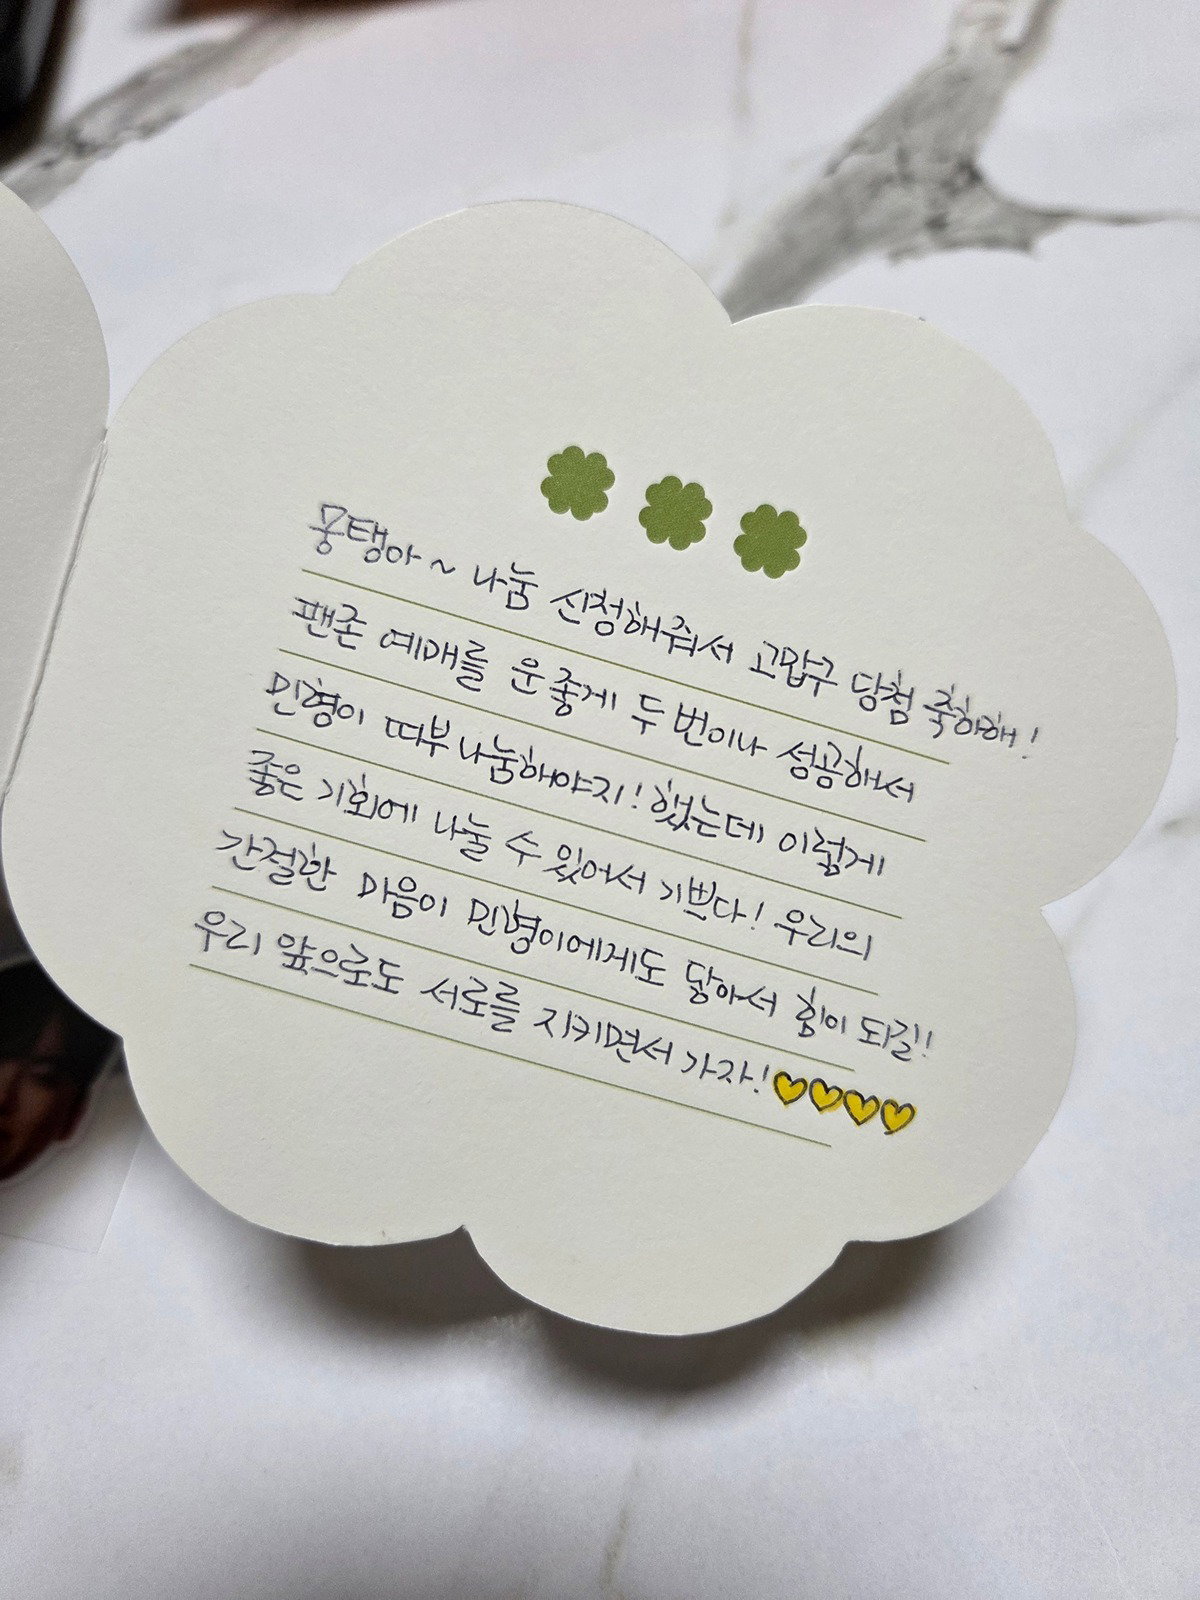 몽탱아~ 나눔 신청해줘서 고맙구 당첨 축하해!
팬존 예매를 운좋게 두번이나 성공해서
민형이 띠부 나눔해야지! 했는데 이렇게
좋은 기회에 나눌 수 있어서 기쁘다! 우리의
간절한 마음이 민형이에게도 닿아서 힘이 되길!
우리 앞으로도 서로를 지키면서 가자! 💛💛💛💛